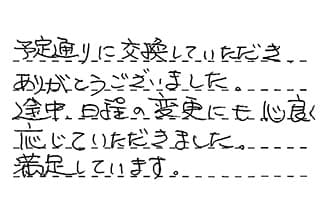 予定通りに交換していただき、
ありがとうございました。
途中、日程の変更にも心良く
応じていただきました。
満足しています。